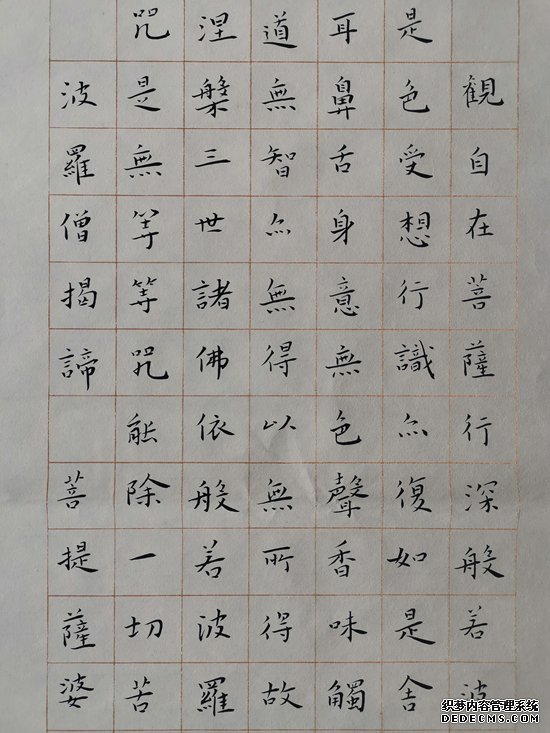 觀自在菩薩行深般若波
是色受想行識亦復如是舍
耳鼻舌身意無色聲香味觸
道無智亦無得以無所得故
涅槃三世諸佛依般若波羅
咒是無等等咒能除一切苦
波羅僧揭諦 菩提薩婆
织梦内容管理系统
DEDECMS.COM